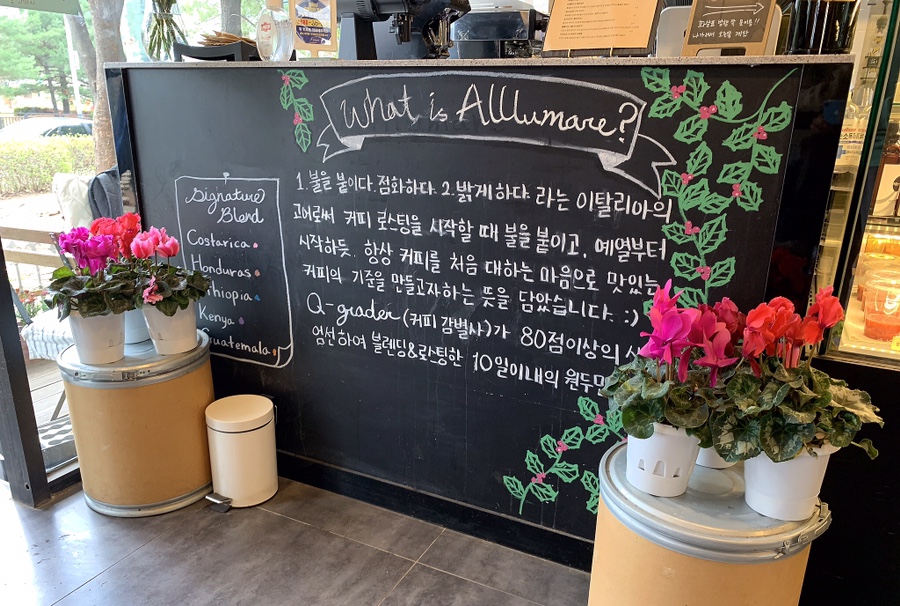 What is Alllumare?
1. 불을 붙이다. 점화하다. 2. 밝게 하다. 라는 이탈리아의
고어로써 커피 로스팅을 시작할 때 불을 붙이고, 예열부터
시작하듯, 항상 커피를 처음 대하는 마음으로 맛있는
커피의 기준을 만들고자하는 뜻을 담았습니다. :)
Q-grader (커피 감별사)가 80점이상의
엄선하여 블렌딩&로스팅한 10일이내의 원두만
Signature
Blend
Costarica
Honduras
Ethiopia
Kenya
Guatemala